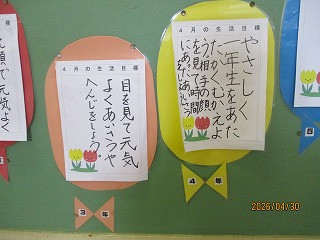 顔で元気よく
4月の生活目標
目を見て元気
よくあいさつや
へんじをしよう。
3年
4月の生活目標
やさしく
一年生をあた
たかくむかえよ
う。相手の顔
を見て時間
にあったあいさつ
4年
2026/04/30